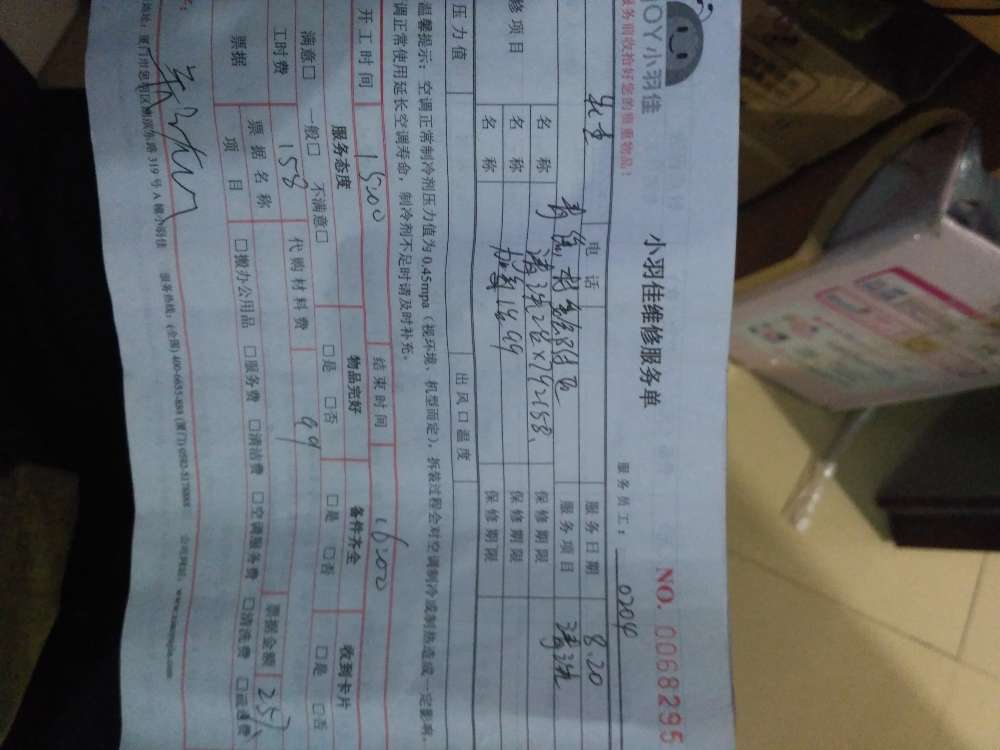 JOY小羽佳
服务前收拾好您的贵重物品!
小羽佳维修服务单
NO. 0068295
服务员工: 0204
电 话
服务日期 8.20
服务项目 清洗
修项目
名 称 清洗2台×79=158、 保修期限
名 称 加氟1台99 保修期限
名 称 保修期限
压力值 出风口温度
温馨提示:空调正常制冷剂压力值为 0.45mpa(视环境、机型而定),拆装过程会对空调制冷或制热造成一定影响,
调正常使用延长空调寿命,制冷剂不足时请及时补充。
开工时间 15:00 结束时间 16:00
服务态度 物品完好 备件齐全 收到卡片
满意□ 一般□ 不满意□ □是 □否 □是 □否 □是 □否
工时费 158 代购材料费 99
票据 票据名称 票据金额 257
项 目 □搬办公用品 □服务费 □清洁费 □空调服务费 □清洗费 □疏通费
319 号 A 幢小羽佳 服务热线:(全国) 400-6655-888 (厦门) 0592-5178888 公司网站:www.xiaoyujia.com